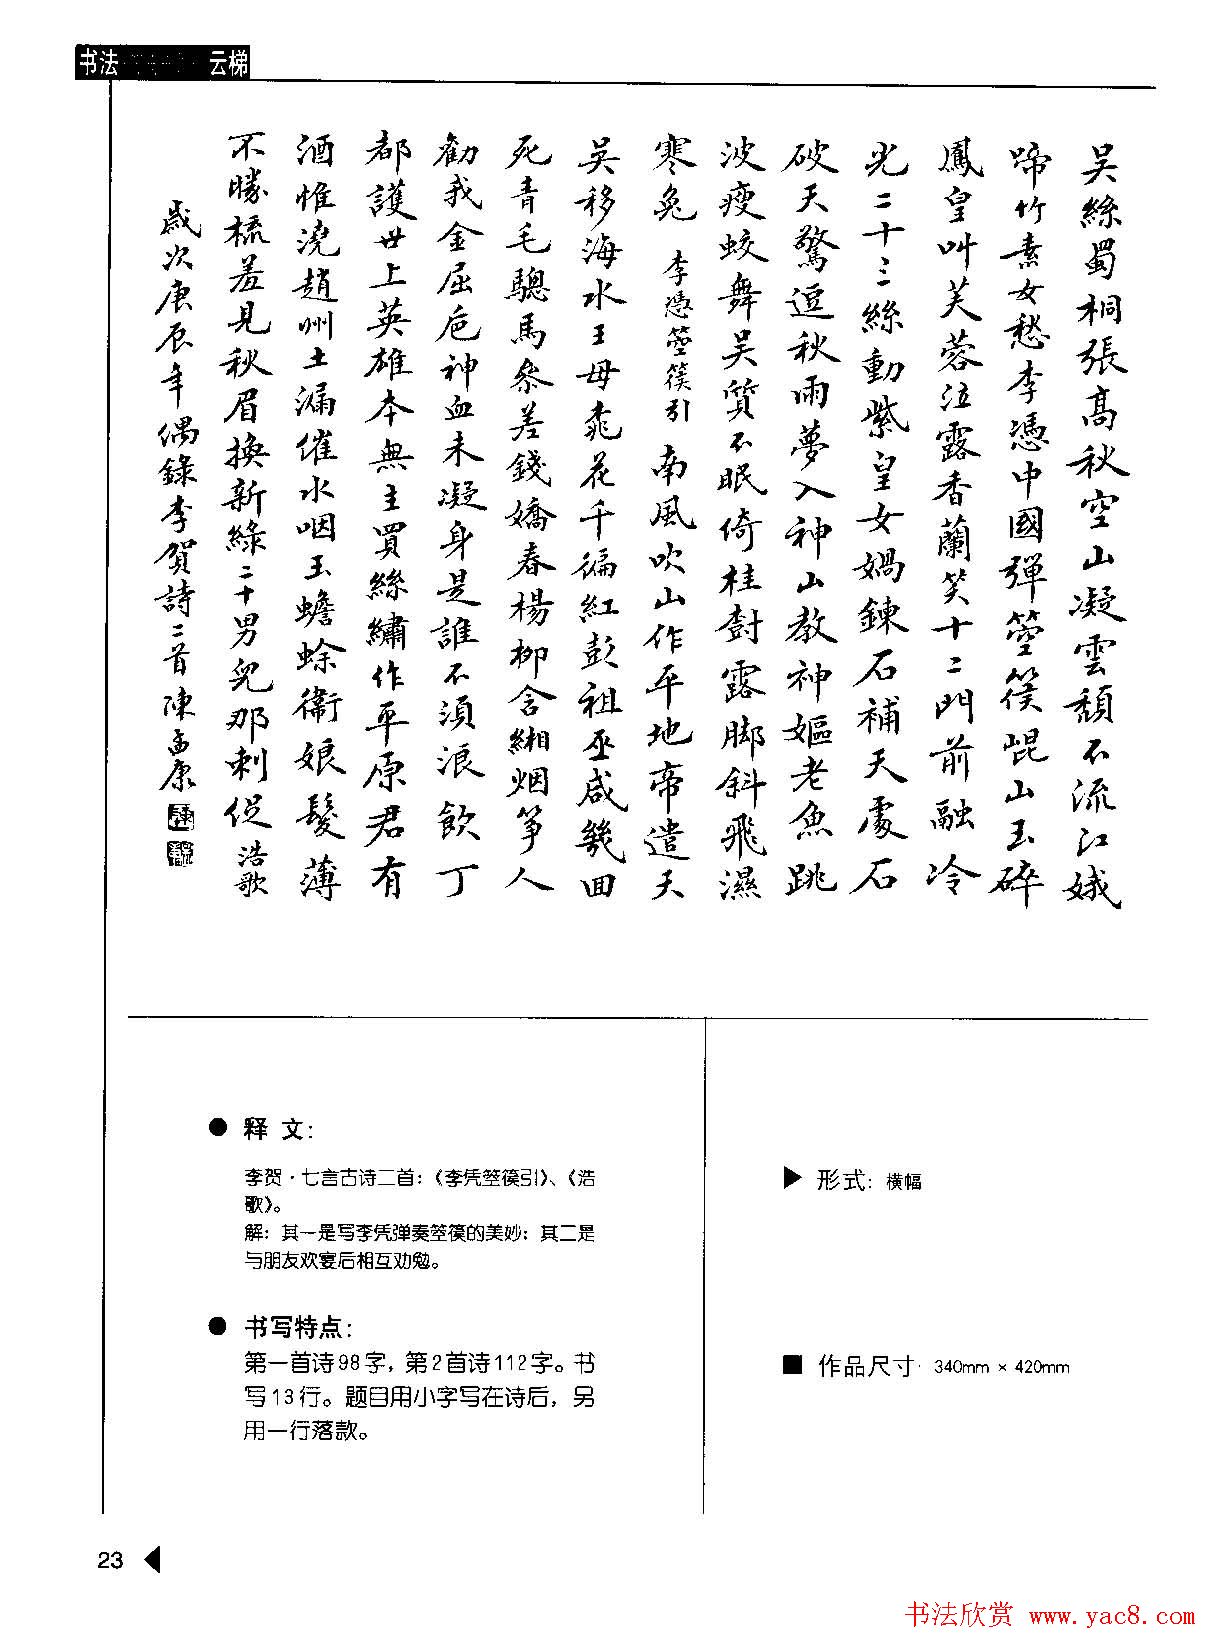 书法
云梯
吴絲蜀桐張高秋空山凝雲頹不流江娥
啼竹素女愁李憑中國彈箜篌崐山玉碎
鳳皇叫芙蓉泣露香蘭笑十二門前融冷
光二十三絲動紫皇女媧鍊石補天處石
破天驚逗秋雨夢入神山教神嫗老魚跳
波瘦蛟舞吴質不眠倚桂樹露脚斜飛濕
寒兔 李憑箜篌引 南風吹山作平地帝遣天
吴移海水王母桃花千徧紅彭祖巫咸幾回
死青毛驄馬參差錢嬌春楊柳含緗烟筝人
勸我金屈卮神血未凝身是誰不須浪飲丁
都護世上英雄本無主買絲繡作平原君有
酒惟澆趙州土漏催水咽玉蟾蜍衛娘髮薄
不勝梳羞見秋眉換新緑二十男兒那刺促 浩歌
歲次庚辰年偶錄李贺詩二首陳

康
● 释 文:
李贺·七言古诗二首:《李凭箜篌引》、《浩
歌》。
解: 其一是写李凭弹奏箜篌的美妙; 其二是
与朋友欢宴后相互劝勉。
● 书写特点:
第一首诗98字, 第2首诗112字。书
写13行。题目用小字写在诗后, 另
用一行落款。
▶ 形式: 横幅
■ 作品尺寸· 340mm × 420mm
23 ◀
书法欣赏 www.yac8.com